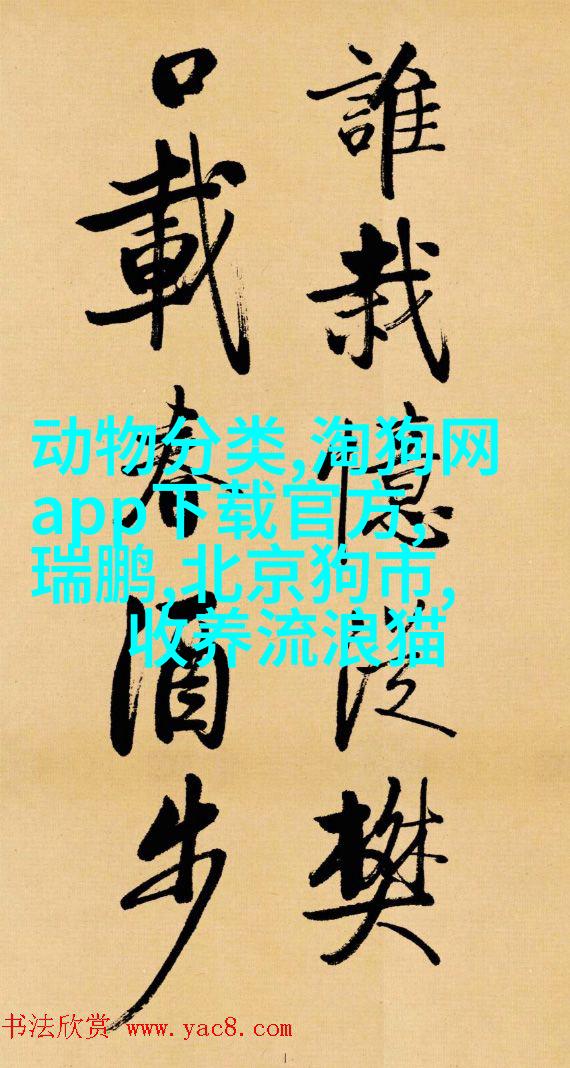 誰栽憶泛樊
口載春酒步
动物分类,淘狗网
app下载官方,
瑞鹏,北京狗市,
收养流浪猫
书法欣赏 www.yac8.com